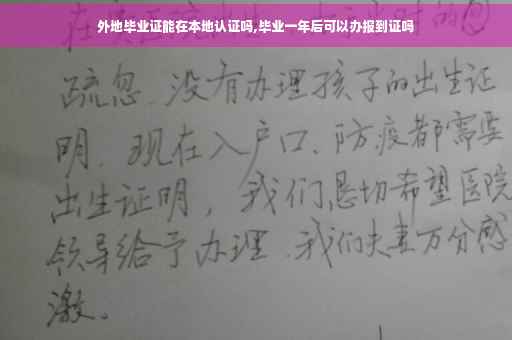 外地毕业证能在本地认证吗,毕业一年后可以办报到证吗
疏忽、没有办理孩子的出生证
明、现在入户口、防疫都需要
出生证明,我们恳切希望医院
领导给予办理、我们夫妻万分感
激。